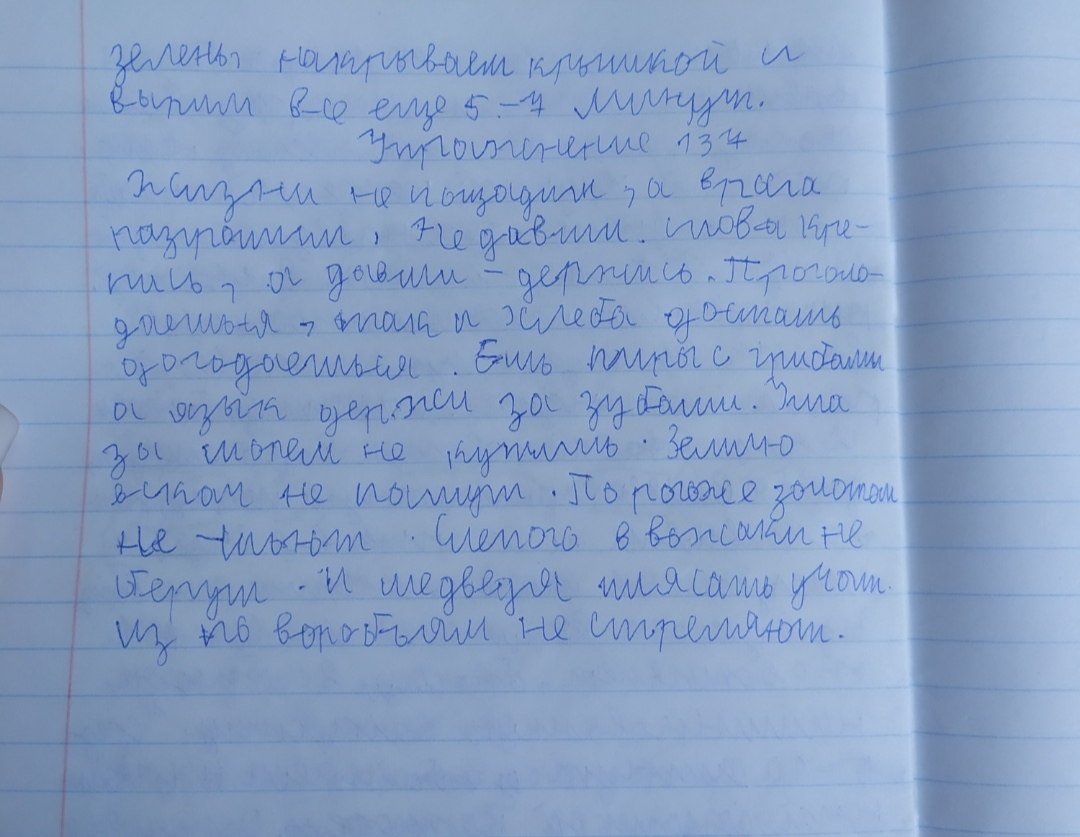 зелень, накрываем крышкой и
варим все еще 5-7 минут.
Упражнение 137
Жизни не пощадим, а врага
разгромим. Не давши слова кре-
пись, а давши - держись. Проголо-
даешься, так и хлеба достать
догадаешься. Ешь пиры с грибами
а язык держи за зубами. Ума
за морем не купишь. Землю
не пашут. По рогоже золотом
не шьют. Слепого в вожаки не
берут. И медведя плясать учат.
Из по воробьям не стреляют.